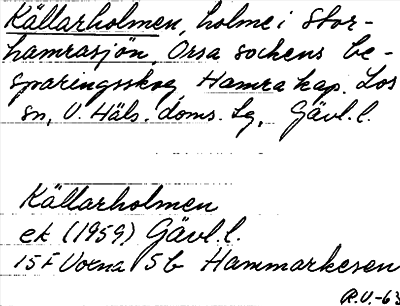 Källarholmen, holme i Stor-
hamrasjön, Orsa sockens be-
sparingsskog, Hamra kap. Los
sn, V. Häls. doms. sg, Gävl.l.
Källarholmen
ek (1959) Gävl.l.
15F Voxna 5b Hammarkesen
R.V.-63